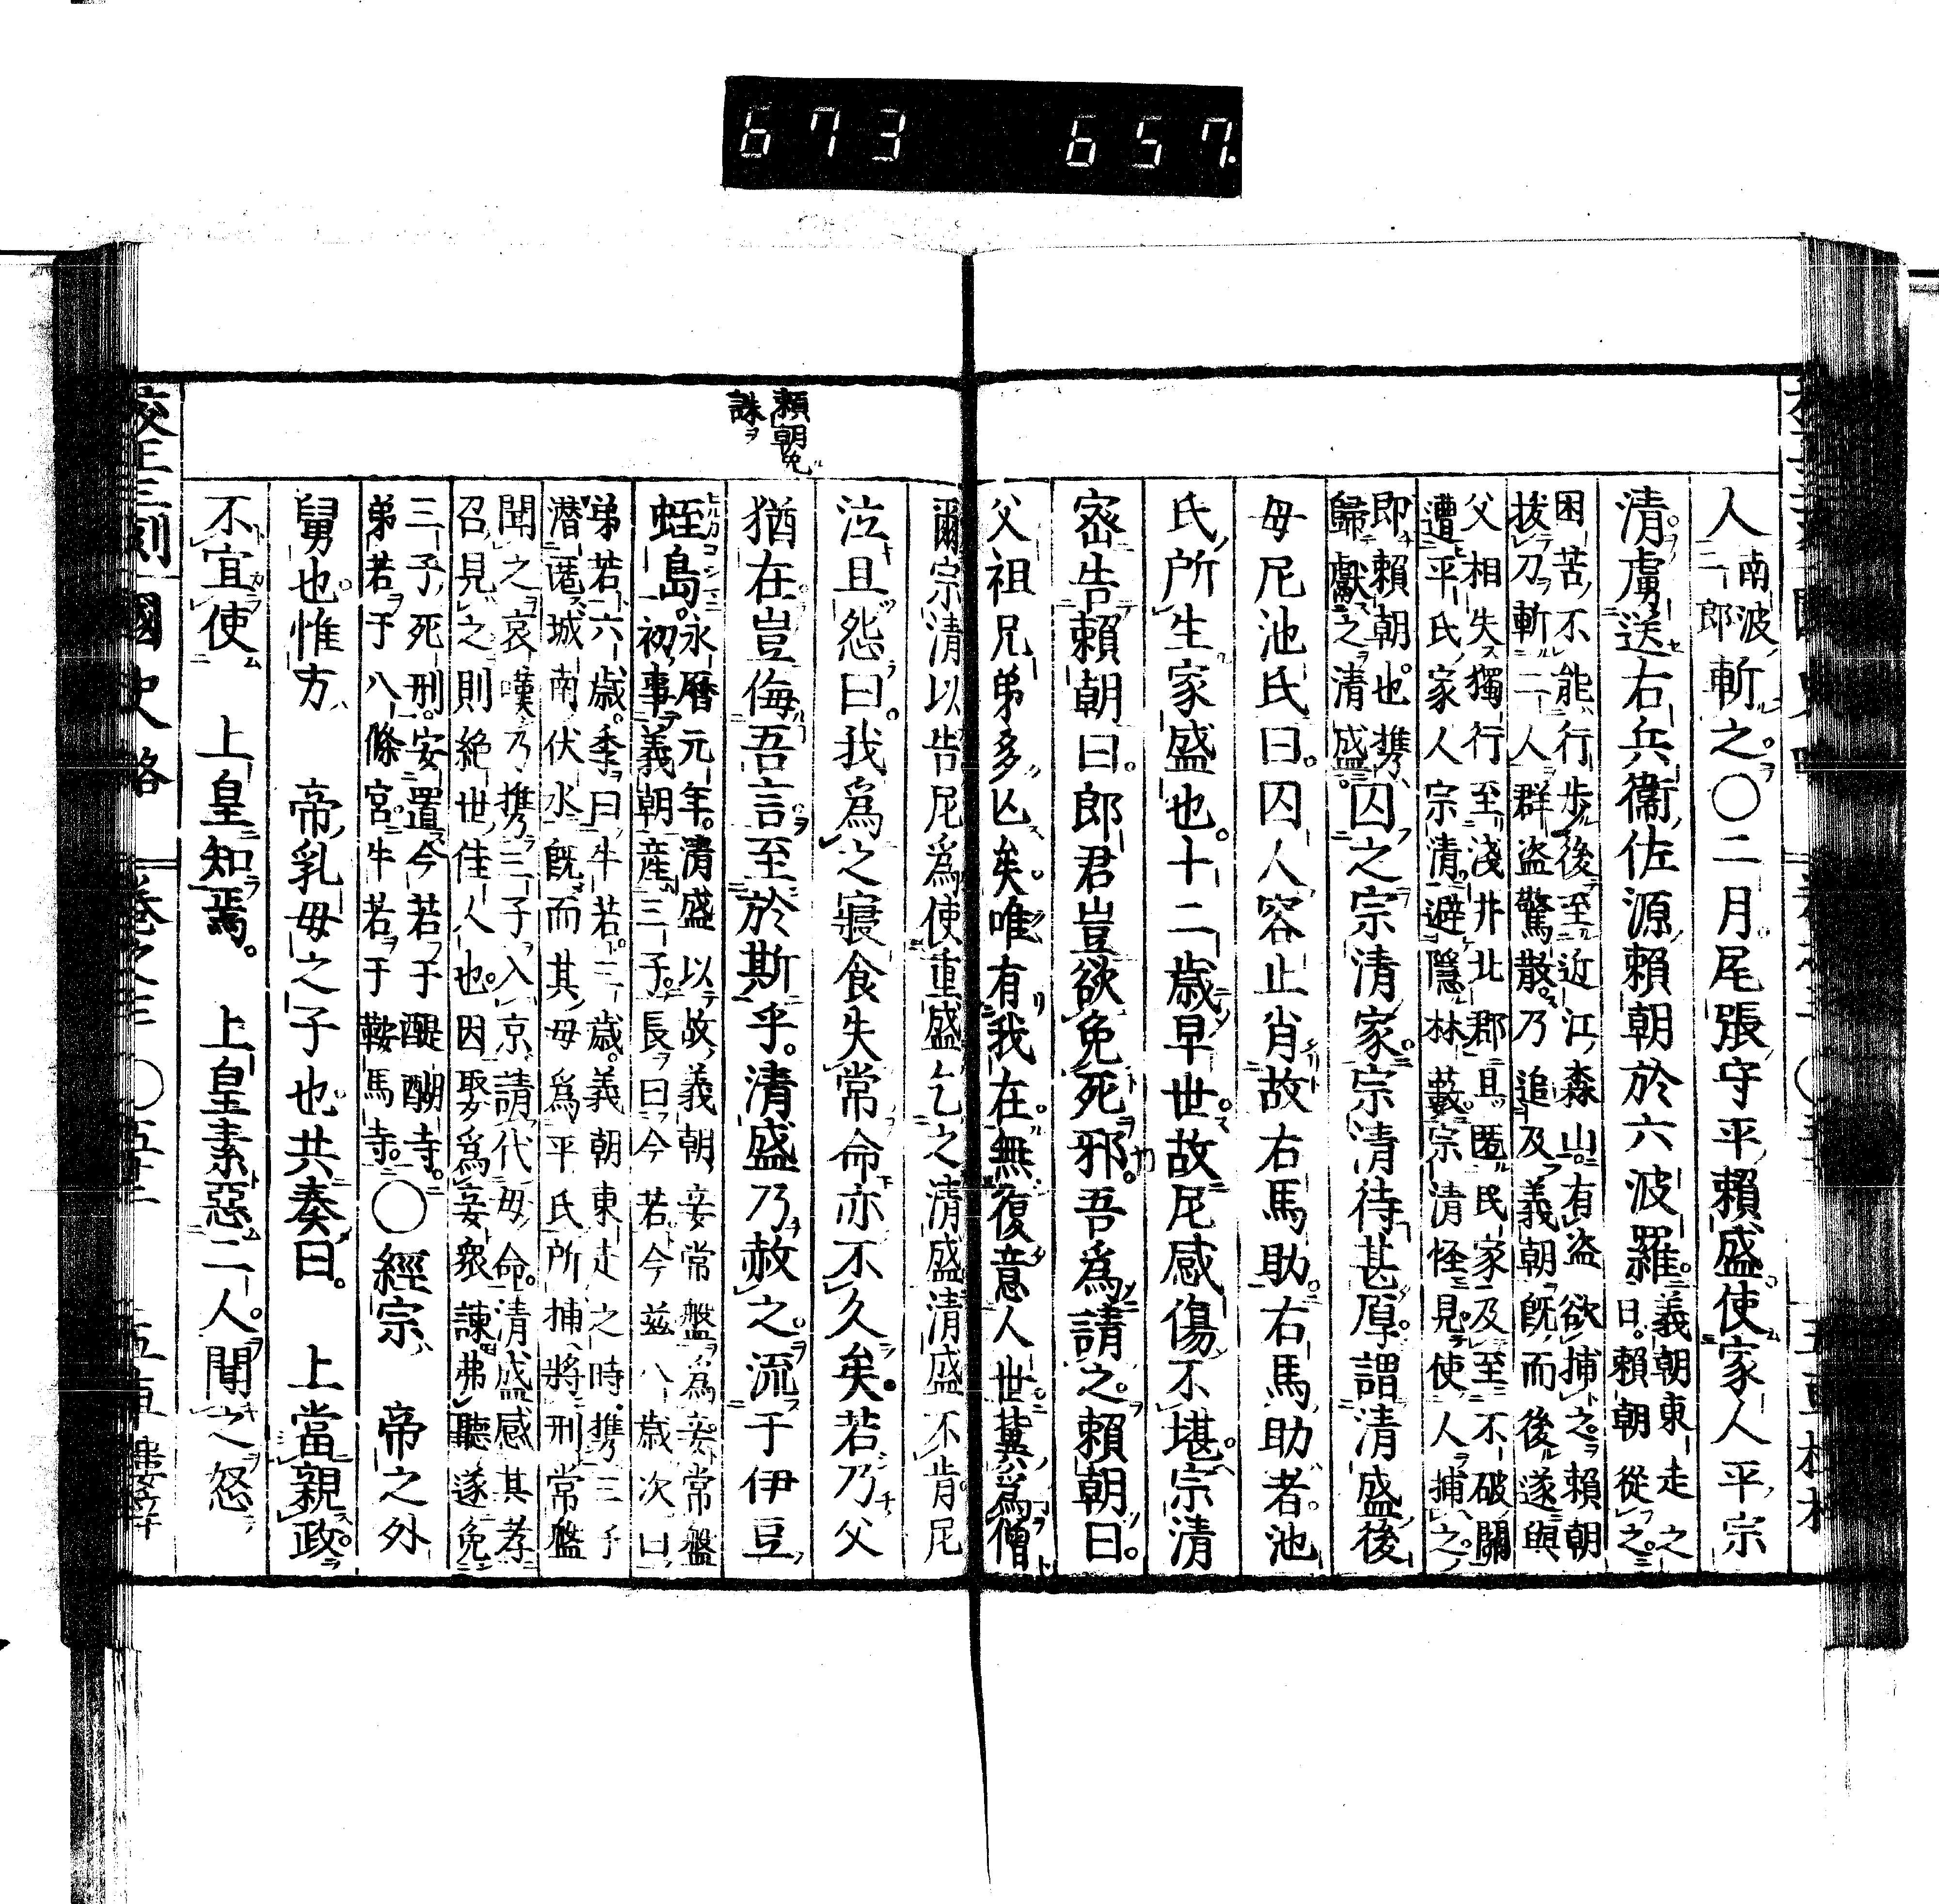 673 657.
人南波二郎斬之。〇二月尾張守平賴盛使家人平宗
清虜送右兵衞佐源賴朝於六波羅。義朝東走之日。賴朝從之。
困苦不能行步後至近江森山有盜欲捕之賴朝
拔刀斬二人群盜驚散。乃追及義朝既而後遂與
父相失獨行至淺井北郡且匿民家及至不破關
遭平氏家人宗淸避隱林藪宗淸怪見使人捕之
卽賴朝也携歸獻之淸盛。囚之宗淸家宗淸待甚厚謂淸盛後
母尼池氏曰。囚人容止肖故右馬助。右馬助者。池
氏所生家盛也。十二歲早世。故尼感傷不堪。宗淸
密告賴朝曰。郎君豈欲免死邪。吾爲請之。賴朝曰。
父祖兄弟多亾矣。唯有我在。無復意人世。冀爲僧
爾宗淸以告尼爲使重盛乞之淸盛淸盛不肯尼
泣且怨曰。我爲之寢食失常命亦不久矣。若乃父
猶在豈侮吾言至於斯乎。淸盛乃赦之。流于伊豆
蛭島。永曆元年。淸盛以故義朝妾常盤爲妾常盤初事義朝産三子。長曰今若今玆八歲次曰
弟若六歲。季曰牛若三歲。義朝東走之時。携三子
潛匿城南伏水既而其母爲平氏所捕將刑常盤
聞之哀嘆乃携三子入京請代母命。淸盛感其孝
召見之則絕世佳人也。因娶爲妾衆諫弗聽遂免
三子死刑。安置今若于醍醐寺。弟若于八條宮。牛若于鞍馬寺。〇經宗帝之外
舅也。惟方帝乳母之子也。共奏曰。上當親政。
不宜使上皇知焉。上皇素惡二人。聞之怒
賴朝免
誅
國史略　卷之三　〇五十二　五車樓梓